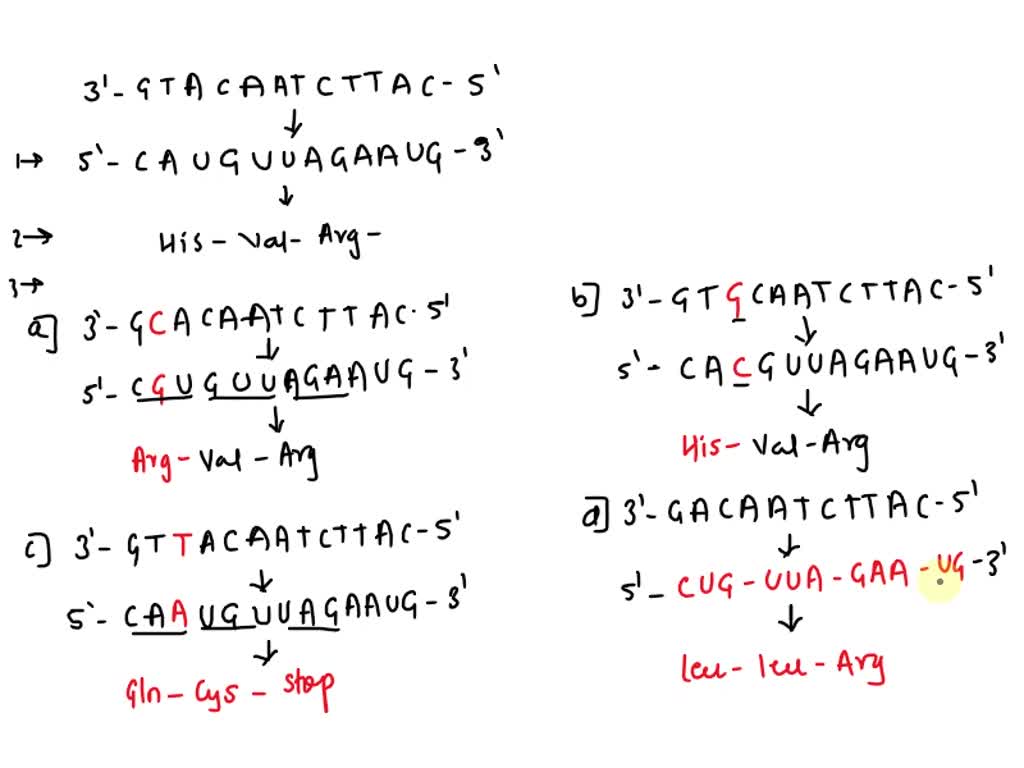 3'- GTACAATCTTAC - 5'
1→ 5'- CAUGUUAGAAUG - 3'
2→ His - Val - Arg -
3→
a] 3'- GCACAATCTTAC. 5'
5'- CGUGUUAGAAUG - 3'
Arg - Val - Arg
b] 3'- GTGCAATCTTAC - 5'
5'- CACGUUAGAAUG - 3'
His - Val - Arg
c] 3'- GTTACAATCTTAC - 5'
5'- CAAUGUUAGAAUG - 3'
Gln - Cys - Stop
d] 3'- GACAATCTTAC - 5'
5'- CUG - UUA - GAA - UG - 3'
leu - leu - Arg